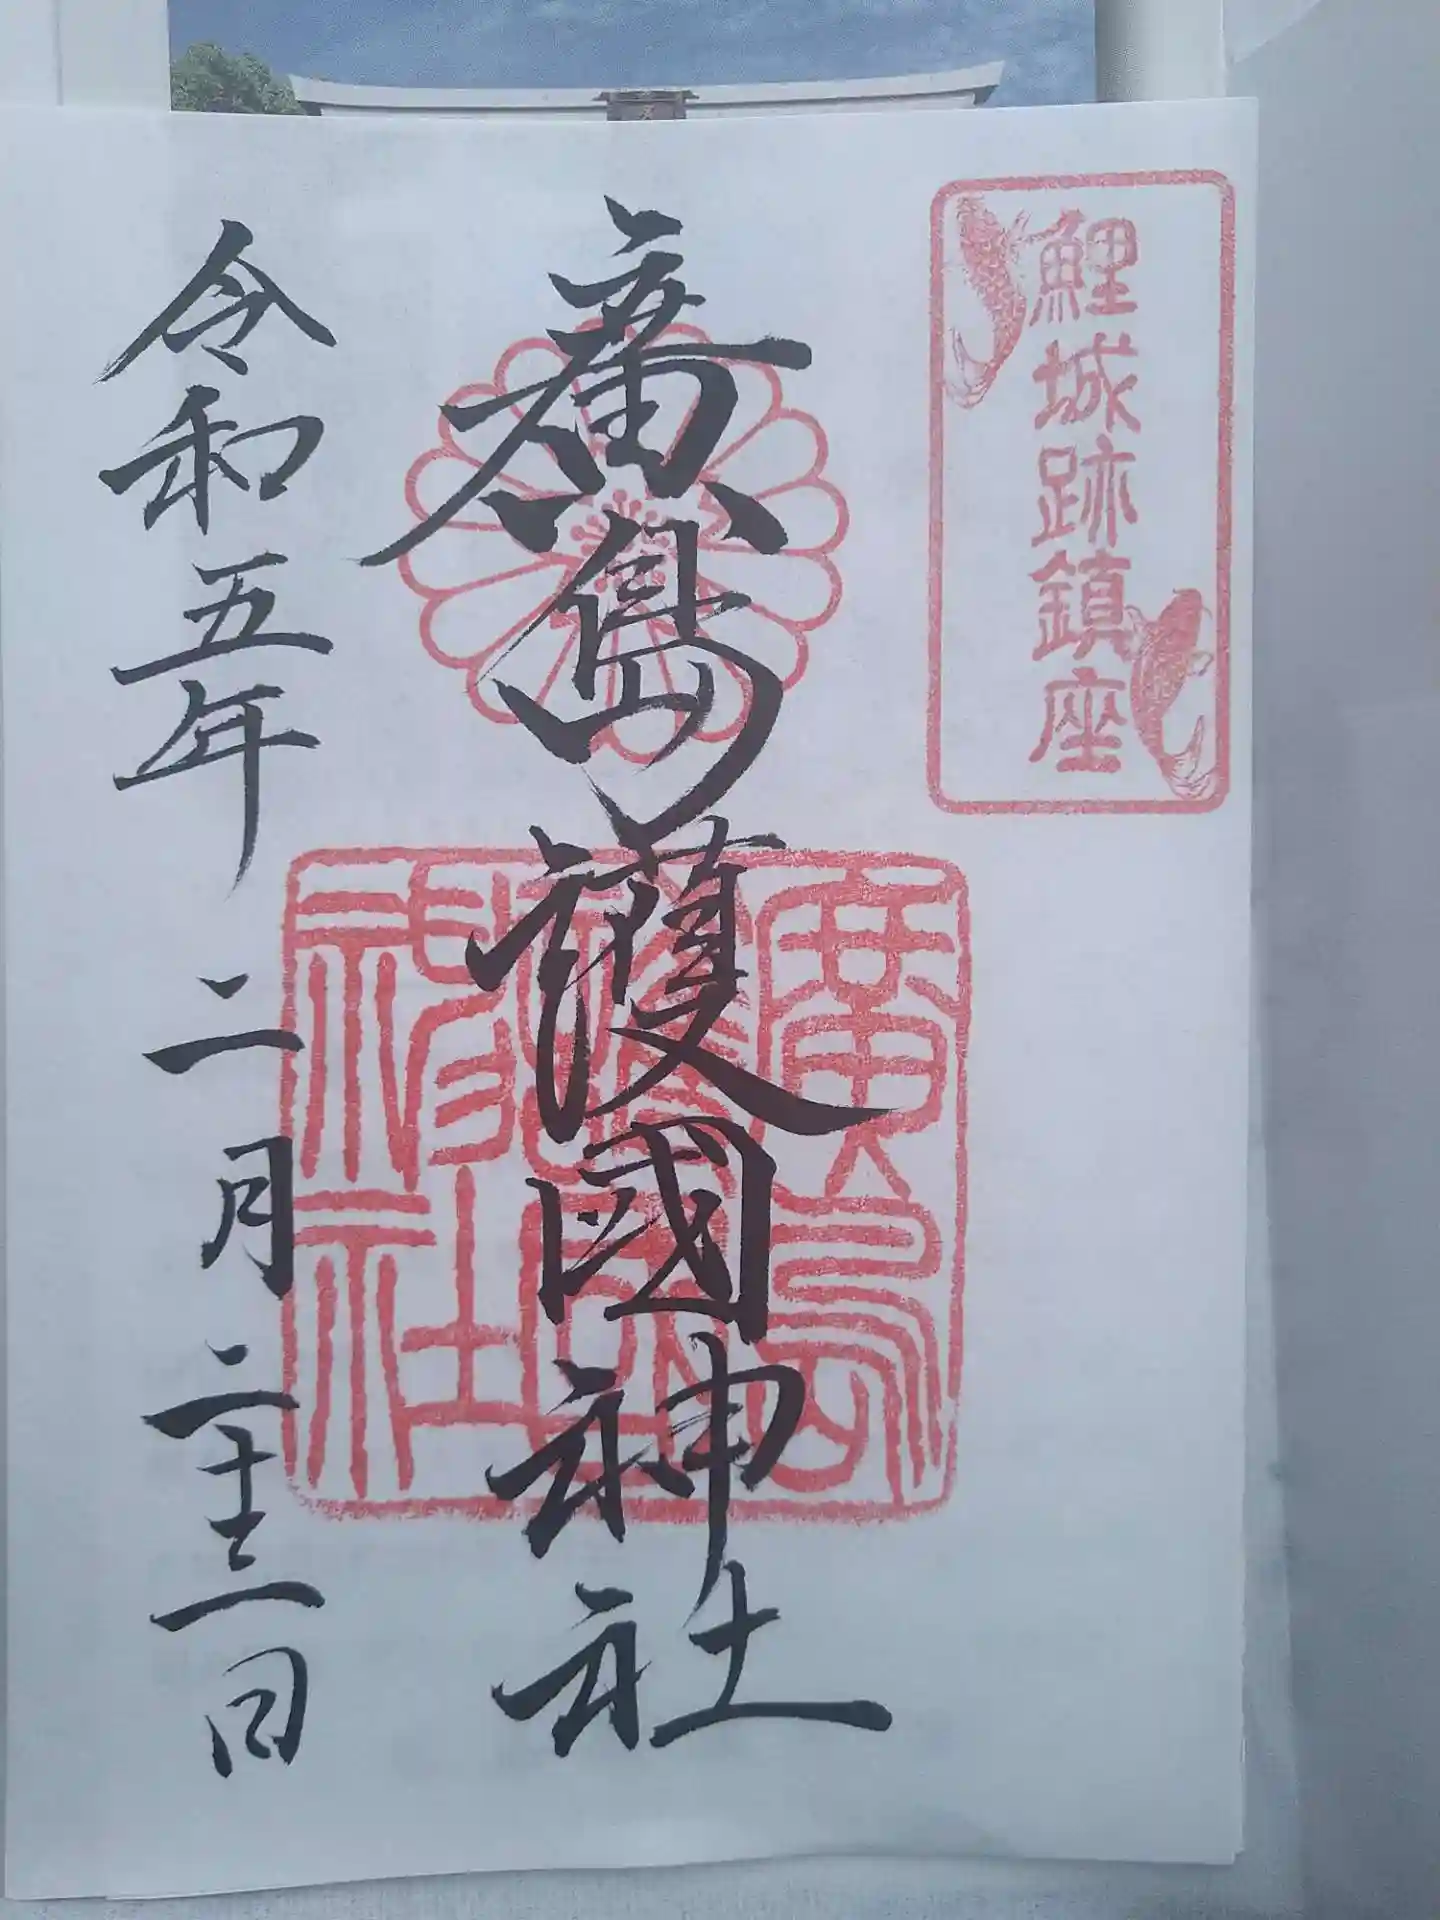 鯉城跡鎮座
廣島護國神社
廣島
護國
神社
令和五年二月二十三日